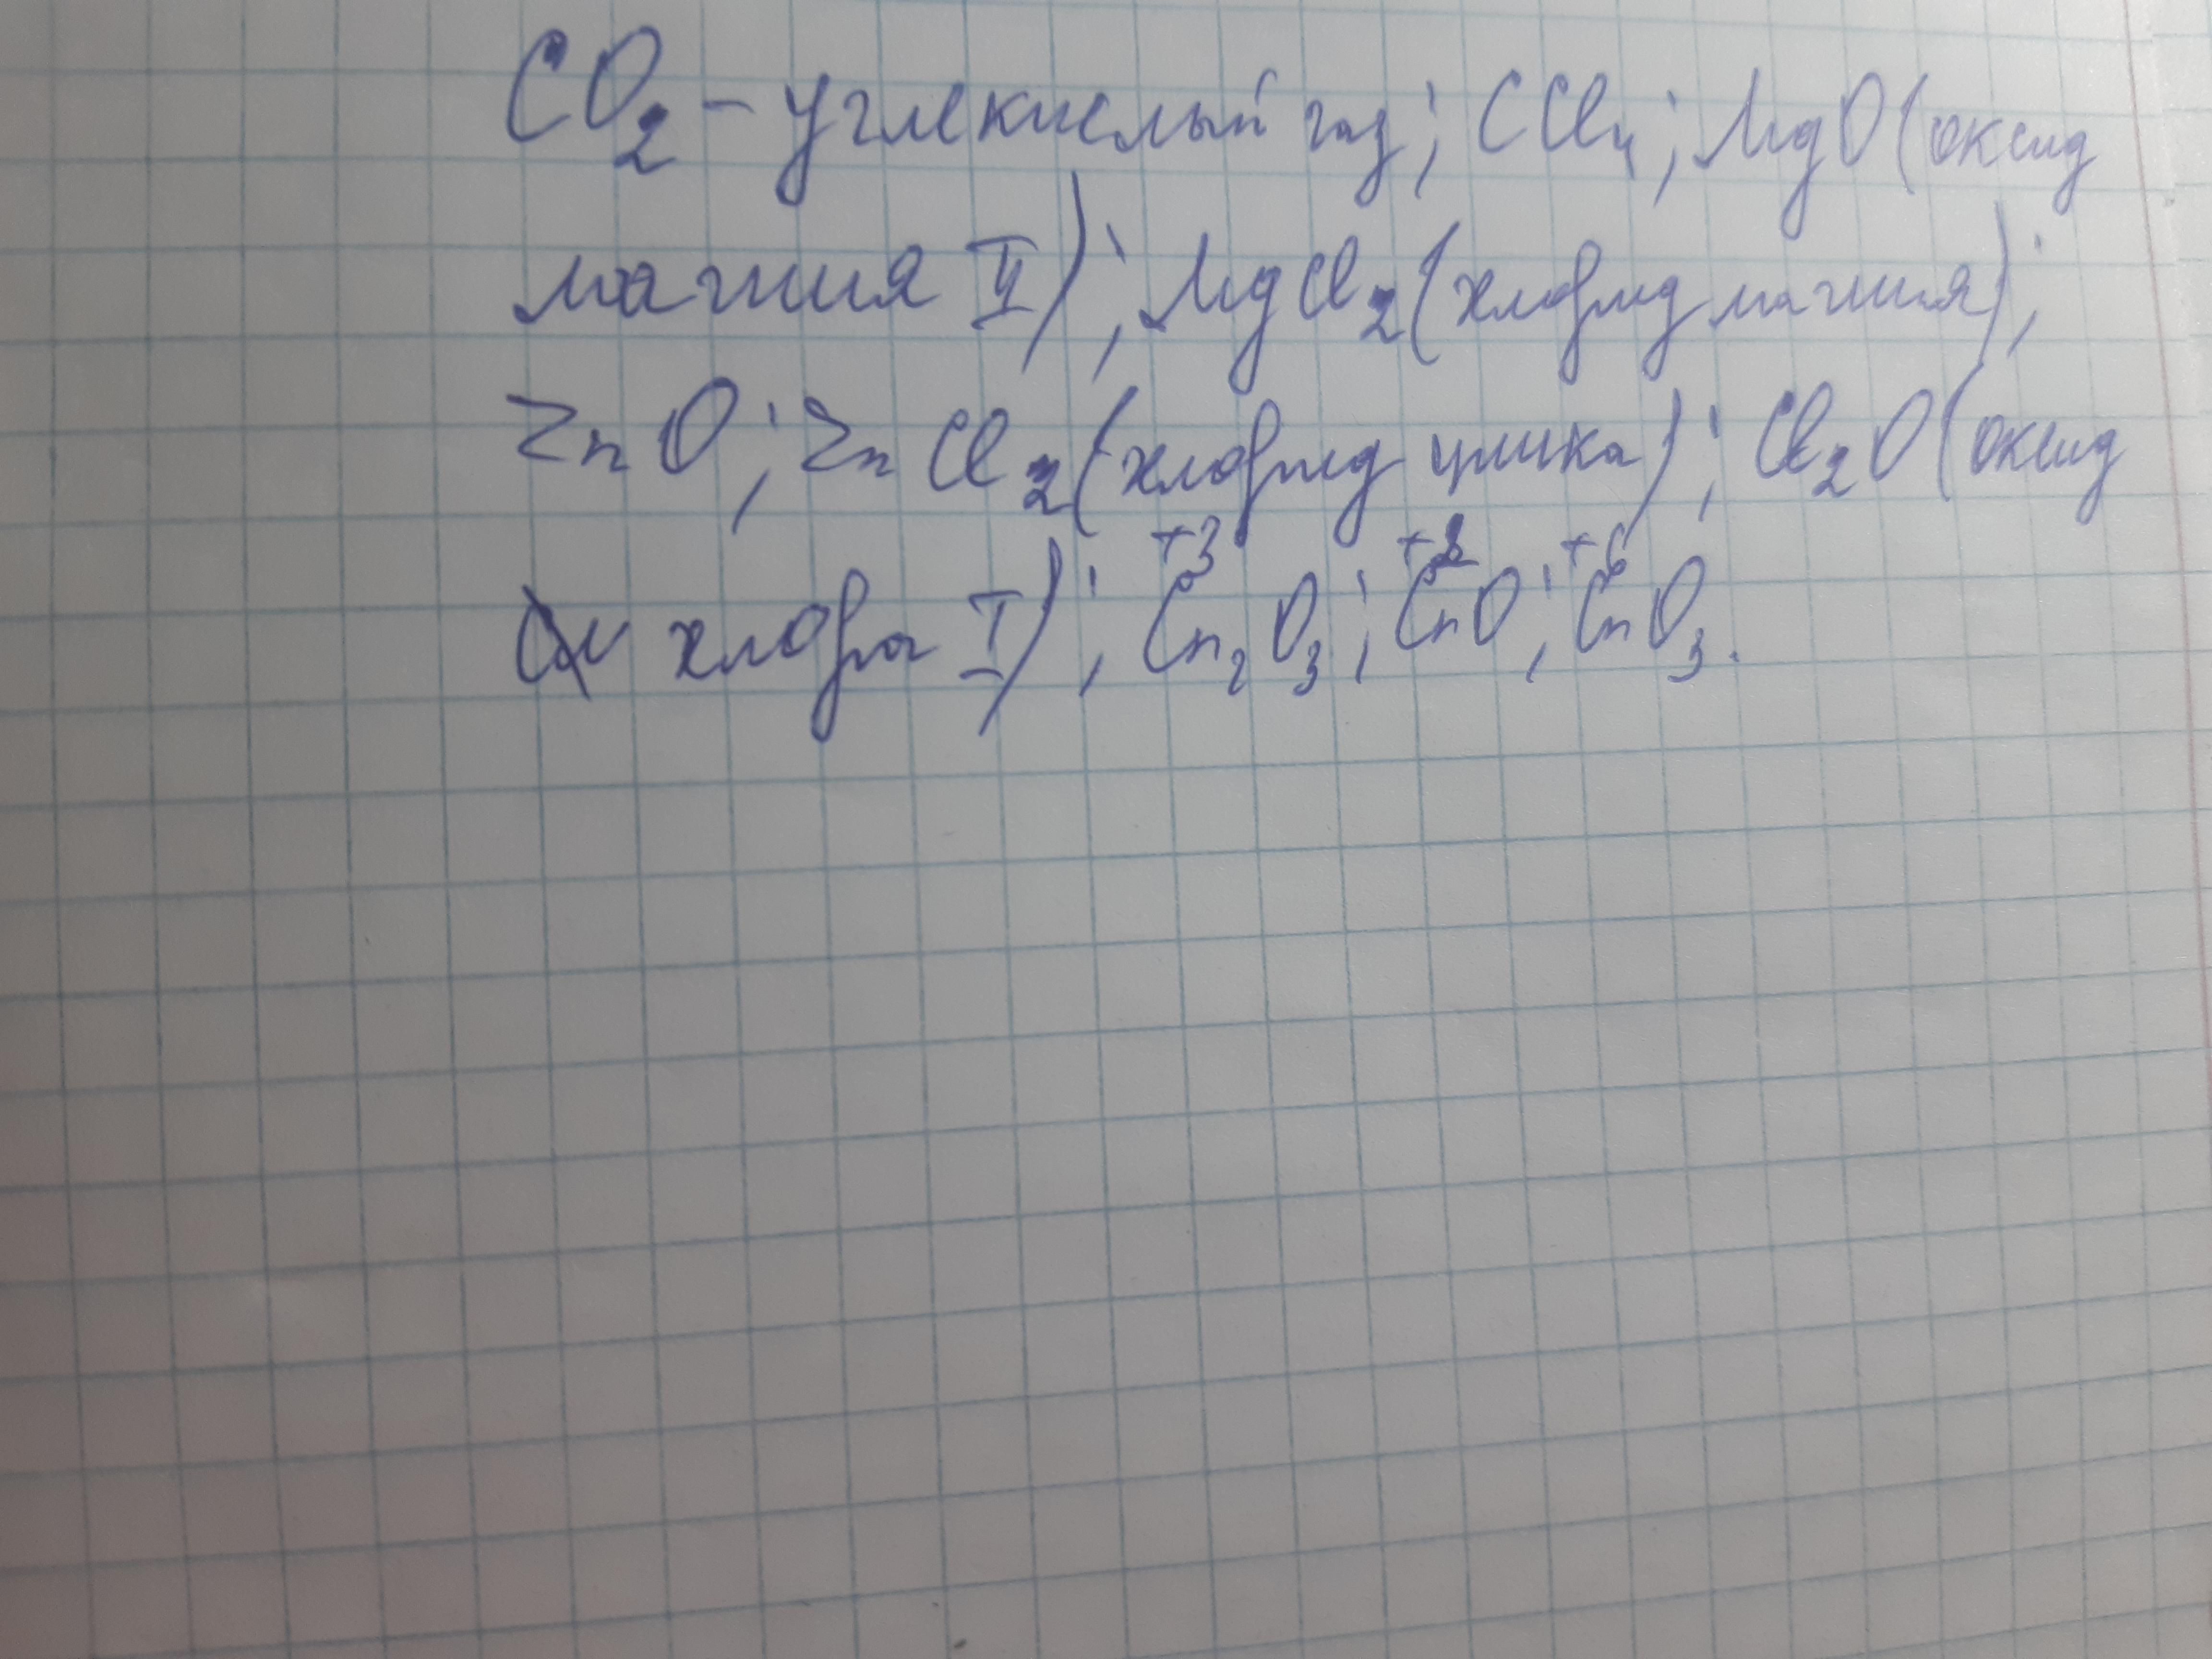 CO₂ - углекислый газ; CCl₄; MgO (оксид
магния II); MgCl₂ (хлорид магния);
ZnO; ZnCl₂ (хлорид цинка); Cl₂O (оксид
хлора I); C⁺³n₂O₃; C⁺²nO; C⁺⁶nO₃.